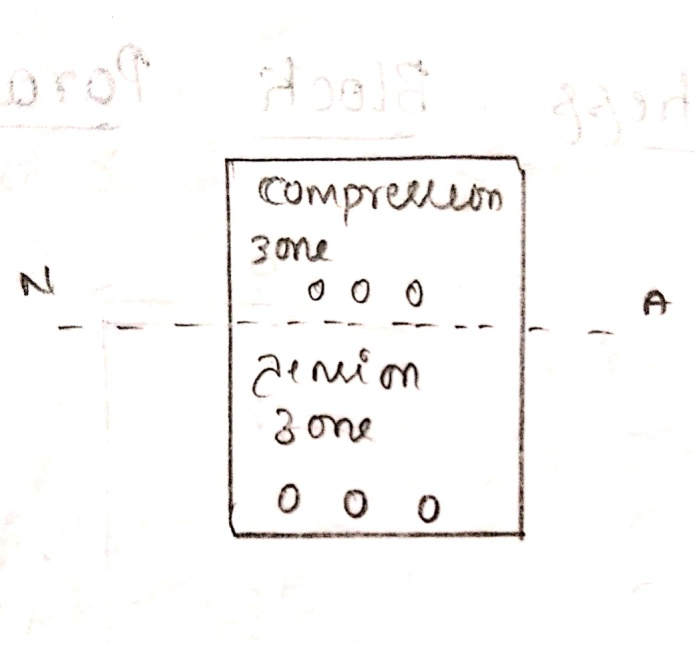 Compression
zone
N
A
Tension
zone